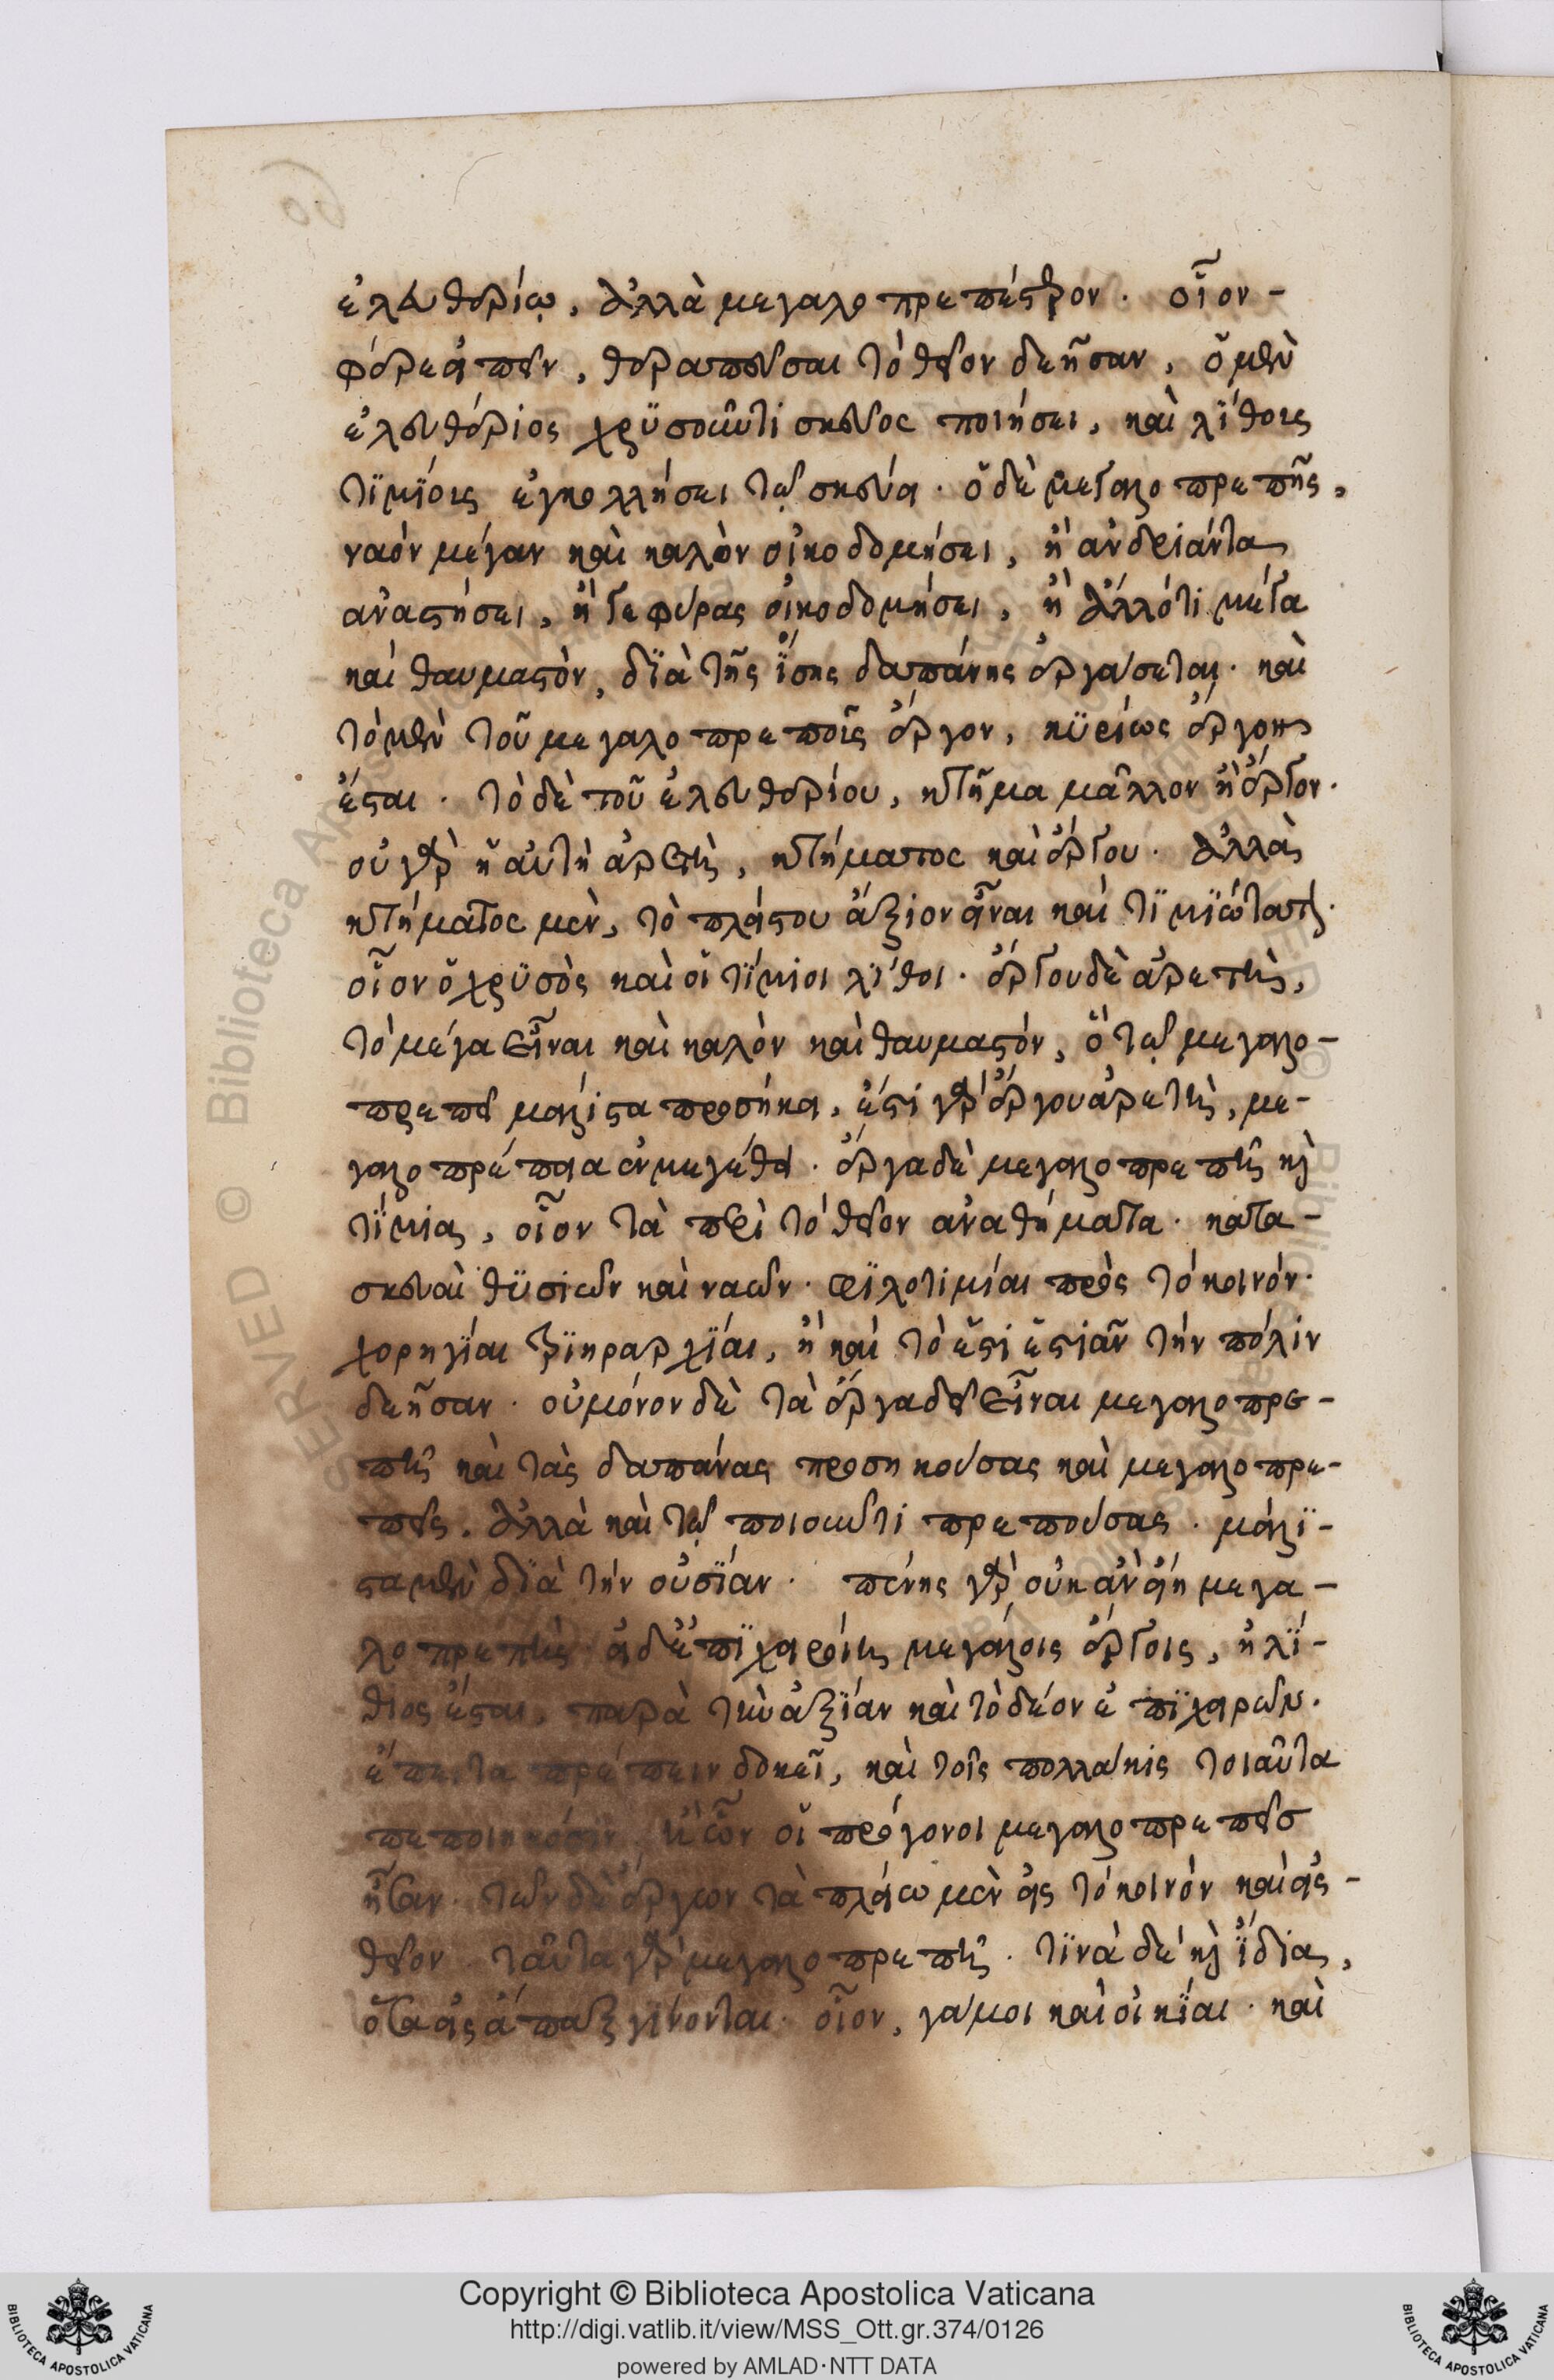 ἐλευθερίῳ, ἀλλὰ μεγαλοπρεπέστερον. οἷον-
φέρε εἰπεῖν, θεραπεῦσαι τὸ θεῖον δεῆσαν, ὁ μὲν
ἐλευθέριος χρϋσοῦν τι σκεῦος ποιήσει, καὶ λίθοις
τϊμϊοις ἐγκολλήσει τῷ σκεύει. ὁ δὲ μεγαλοπρεπῆς,
ναὸν μέγαν καὶ καλὸν οἰκοδομήσει, ἢ ἀνδριάντα
ἀναστήσει, ἢ γεφύρας οἰκοδομήσει, ἢ ἄλλό τι μέγα
καὶ θαυμαστὸν, δϊὰ τῆς ἴσης δαπάνης ἐργάσεται. καὶ
τὸ μὲν τοῦ μεγαλοπρεποῦς ἔργον, κϋρίως ἔργον
ἔσται. τὸ δὲ τοῦ ἐλευθερίου, κτῆμα μᾶλλον ἢ ἔργον.
οὐ γὰρ ἡ αὐτὴ ἀρετὴ, κτήματος καὶ ἔργου. ἀλλὰ
κτήματος μὲν, τὸ πλείστου ἄξιον εἶναι καὶ τϊμϊώτατον.
οἷον ὁ χρϋσὸς καὶ οἱ τίμιοι λίθοι. ἔργου δὲ ἀρετὴ,
τὸ μέγα εἶναι καὶ καλὸν καὶ θαυμαστόν, ὃ τῷ μεγαλο-
πρεπεῖ μάλιστα προσήκει. ἔστι γὰρ ἔργου ἀρετὴ, με-
γαλοπρέπεια ἐν μεγέθει. ἔργα δὲ μεγαλοπρεπῆ καὶ
τίμια, οἷον τὰ περὶ τὸ θεῖον ἀναθήματα. κατα-
σκευαὶ θϋσιῶν καὶ ναῶν. φϊλοτιμίαι πρὸς τὸ κοινόν.
χορηγίαι τρϊηραρχίαι, ἢ καὶ τὸ ἔστι ἑστιᾶν τὴν πόλιν
δεῆσαν. οὐ μόνον δὲ τὰ ἔργα δεῖ εἶναι μεγαλοπρε-
πῆ καὶ τὰς δαπάνας προσηκούσας καὶ μεγαλοπρε-
πεῖς. ἀλλὰ καὶ τῷ ποιοῦντι πρεπούσας. μάλϊ-
στα μὲν δϊὰ τὴν οὐσίαν. πένης γὰρ οὐκ ἂν εἴη μεγα-
λοπρεπὴς εἰ δὲ ἐπϊχειροίη μεγάλοις ἔργοις, ἠλί-
θιος ἔσται, παρὰ τὴν ἀξίαν καὶ τὸ δέον ἐπϊχειρῶν.
ἔπειτα πρέπειν δοκεῖ, καὶ τοῖς πολλάκις τοιαῦτα
πεποιηκόσιν, ἢ ὧν οἱ πρόγονοι μεγαλοπρεπεῖς
ἦσαν. τῶν δὲ ἔργων τὰ πλείω μὲν εἰς τὸ κοινὸν καὶ εἰς-
θεῖον ταῦτα γὰρ μεγαλοπρεπῆ. τϊνὰ δὲ καὶ ἴδια,
ὅσα εἰς ἅπαξ γίνονται. οἷον, γάμοι καὶ οἰκίαι. καὶ
Copyright © Biblioteca Apostolica Vaticana
http://digi.vatlib.it/view/MSS_Ott.gr.374/0126
powered by AMLAD·NTT DATA